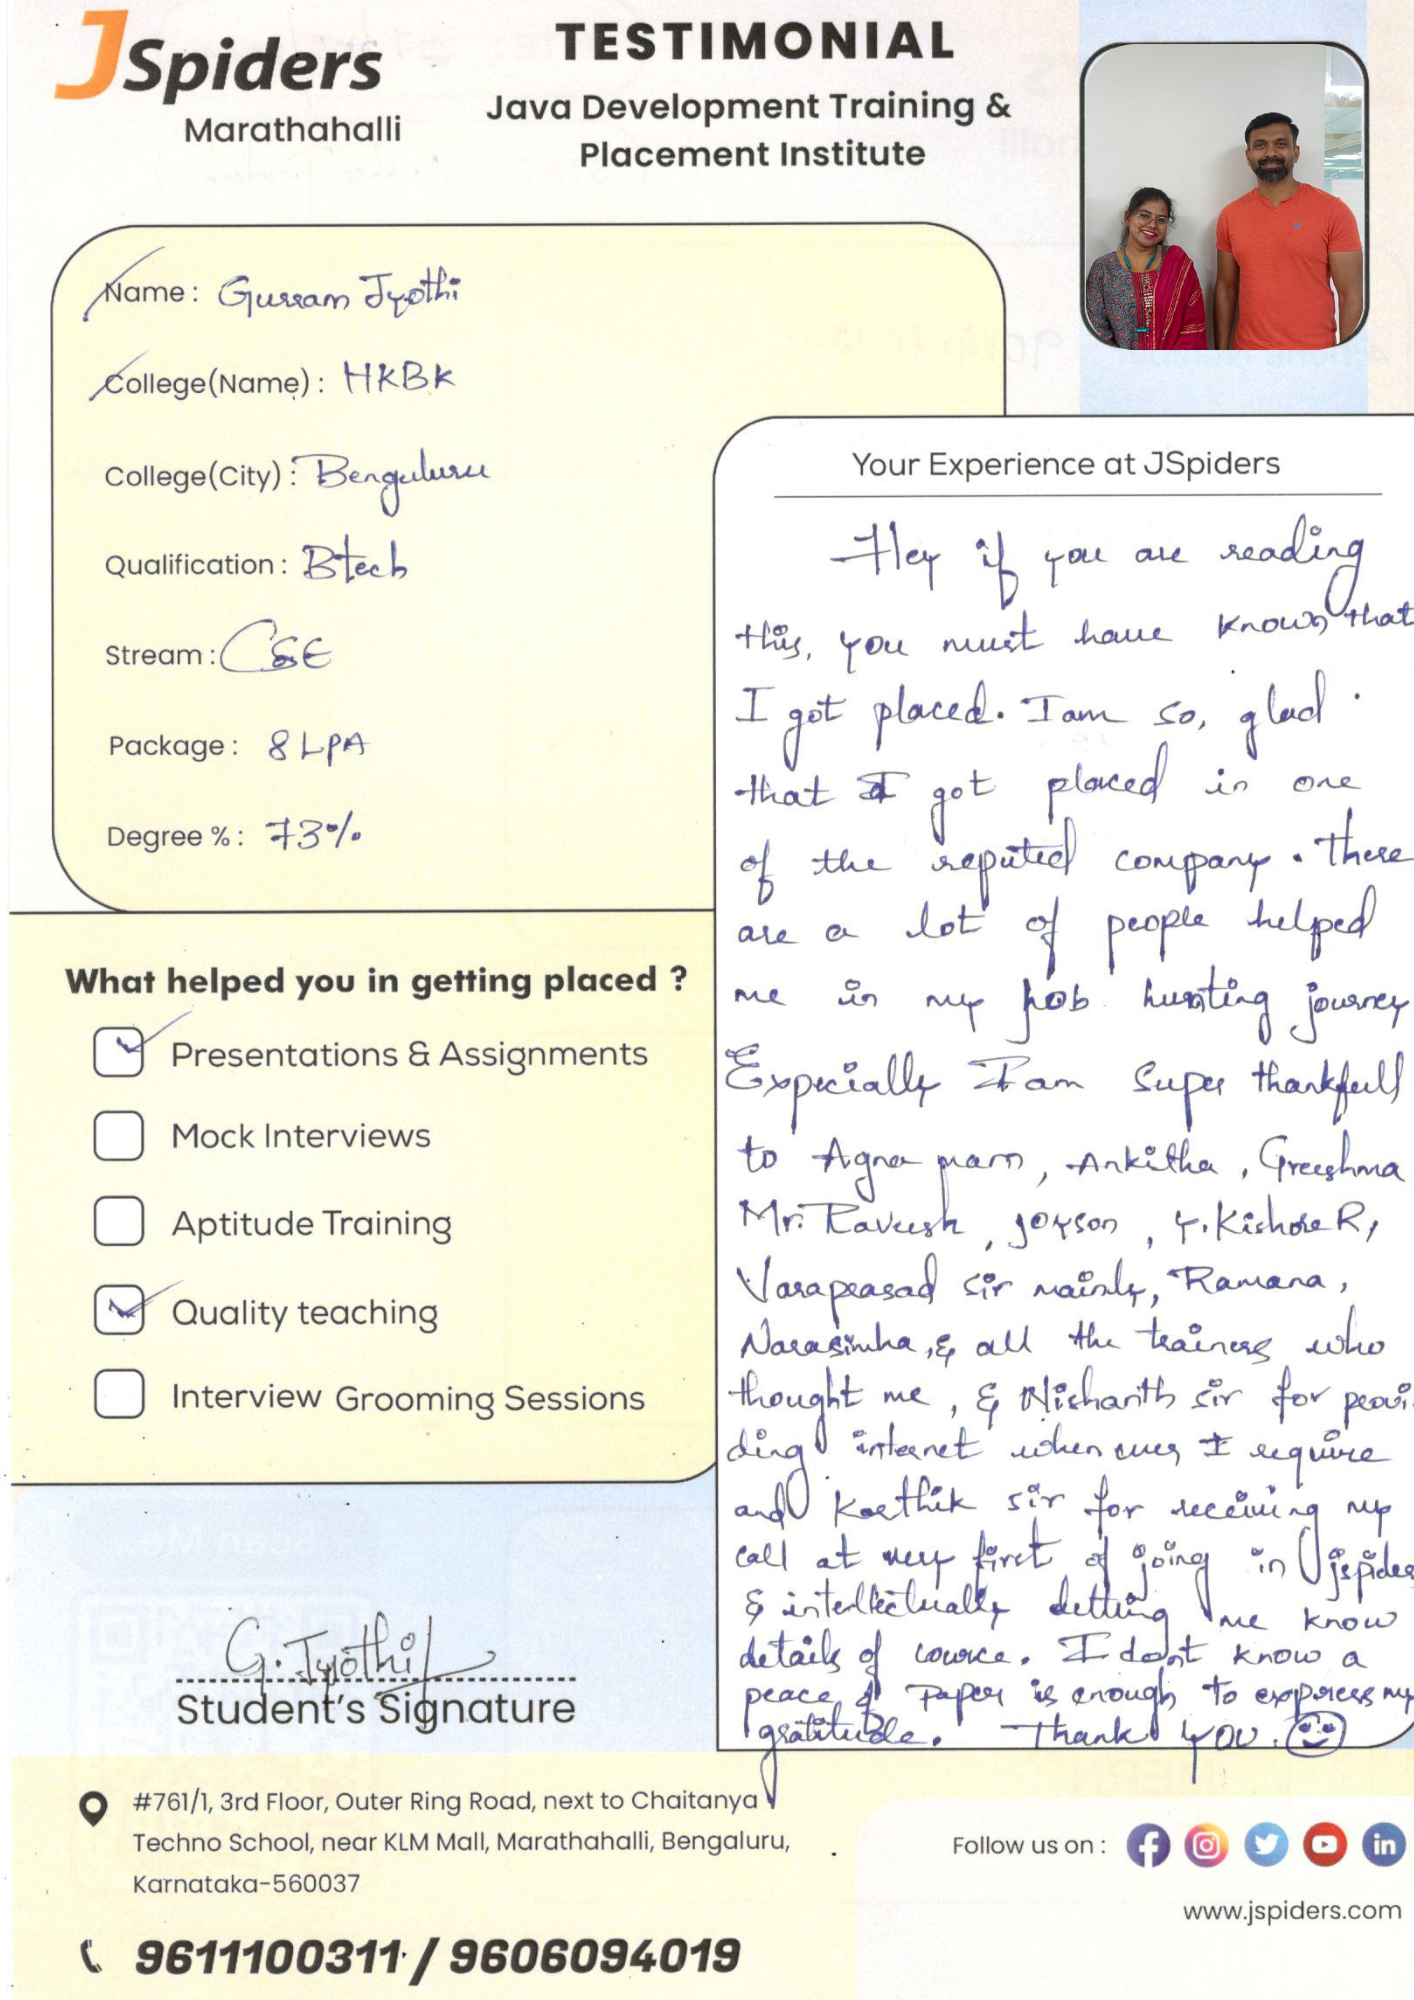 JSpiders
Marathahalli
TESTIMONIAL
Java Development Training &
Placement Institute
Name : Gurram Jyothi
College(Name) : HKBK
College(City) : Benguluru
Qualification : Btech
Stream : CSE
Package : 8 LPA
Degree % : 73%
What helped you in getting placed ?
Presentations & Assignments
Mock Interviews
Aptitude Training
Quality teaching
Interview Grooming Sessions
G. Jyothi
Student's Signature
Your Experience at JSpiders
Hey if you are reading
this, you must have known that
I got placed. I am so, glad
that I got placed in one
of the reputed company. There
are a lot of people helped
me in my job hunting journey
Expecially I am super thankfull
to Agna mam, Ankitha, Greeshma
Mr. Raveesh, joyson, Y. Kishore R,
Varaprasad sir mainly, Ramana,
Narasimha, & all the trainers who
thought me, & Nishanth sir for provi-
ding internet when ever I require
and Karthik sir for receiving my
call at very first of joing in jspider
& intellectually letting me know
details of cource. I dont know a
peace of paper is enough to express my
gratitude. Thank you.
#761/1, 3rd Floor, Outer Ring Road, next to Chaitanya
Techno School, near KLM Mall, Marathahalli, Bengaluru,
Karnataka-560037
9611100311 / 9606094019
Follow us on :
www.jspiders.com